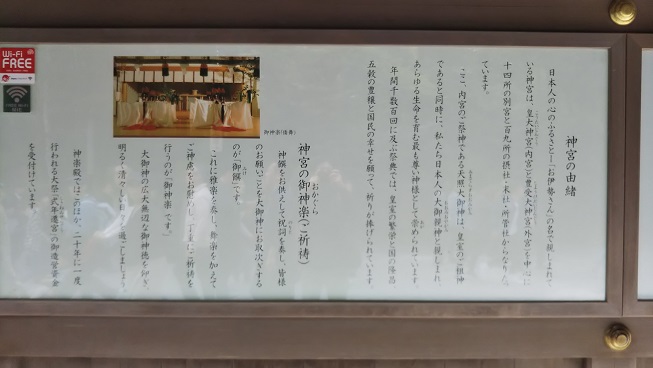 神宮の由緒
日本人の心のふるさと「お伊勢さん」の名で親しまれて
いる神宮は、皇大神宮(内宮)と豊受大神宮(外宮)を中心に
十四所の別宮と百九所の摂社・末社・所管社からなりたっ
ています。
ここ、内宮のご祭神である天照大御神は、皇室のご祖神
であると同時に、私たち日本人の大御親神と親しまれ、
あらゆる生命を育む最も尊い神様として崇められています。
年間千数百回に及ぶ祭典では、皇室の繁栄と国の隆昌
五穀の豊穣と国民の幸せを願って、祈りが捧げられています。
御神楽(倭舞)
神宮の御神楽(ご祈祷)
おかぐら
神饌をお供えして祝詞を奏し、皆様
のお願いごとを大御神にお取次ぎする
のが「御饌」です。
これに雅楽を奏し、舞楽を加えて
ご神慮をお慰めし、丁重にご祈祷を
行うのが「御神楽」です。
大御神の広大無辺な御神徳を仰ぎ、
明るく清々しい日々を過ごしましょう。
神楽殿ではこのほか、二十年に一度
行われる大祭「式年遷宮」の御造営資金
を受付けています。
Wi-Fi
FREE